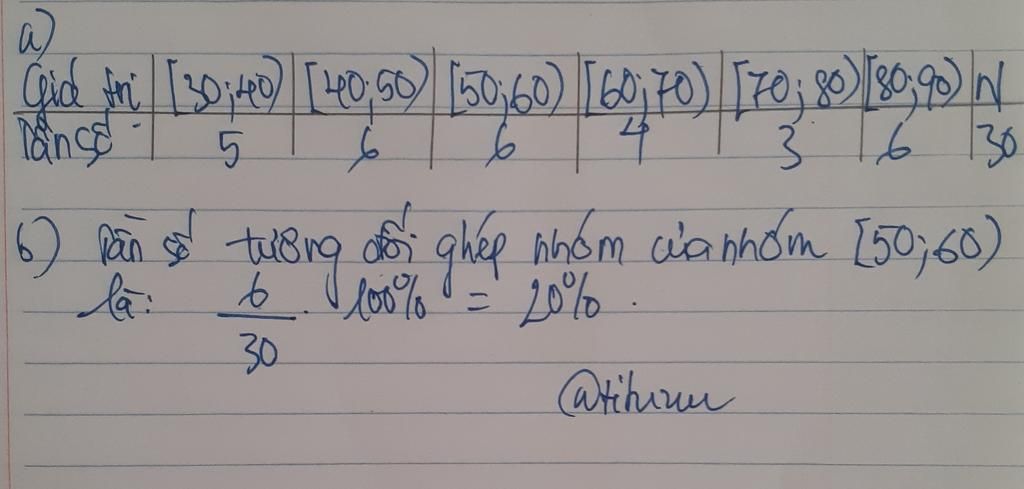 a)
Giá trị [30;40) [40;50) [50;60) [60;70) [70;80) [80;90) N
Tần số 5 6 6 4 3 6 30
b) Tần số tương đối ghép nhóm của nhóm [50;60)
là: 6/30 . 100% = 20%.